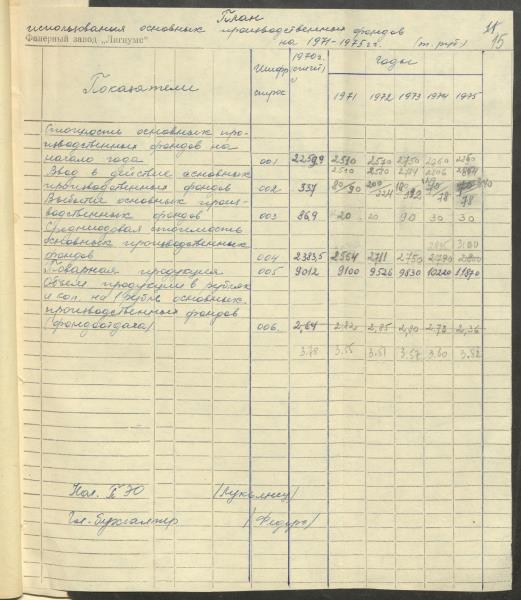 План
использования основных производственных фондов
Фанерный завод „Лигнумс"
на 1971-1975 г.г. (т. руб)
15
Показатели Шифр строк 1970г. (отчет) годы
1971 1972 1973 1974 1975
Стоимость основных про-
изводственных фондов на
начало года 001 2259,9 2510 2570 2750 2760 2760
2510 2570 2806
Ввод в действие основных
производственных фондов 002 337 80 90 200 224 180 70 78 70 78
Выбытие основных произ-
водственных фондов 003 86,9 20 20 90 30 30
Среднегодовая стоимость
основных производственных 3100
фондов 004 2383,5 2564 2711 2750 2790 2800
Товарная продукция 005 9012 9100 9526 9830 10220 11870
Объем продукции в рублях
и коп. на 1 рубль основных
производственных фондов
(фондоотдача) 006 2,64 2,85 2,80 2,73 2,36
3.78 3.55 3.51 3.57 3.60 3.82
Нач. ПЭО
Гл. бухгалтер